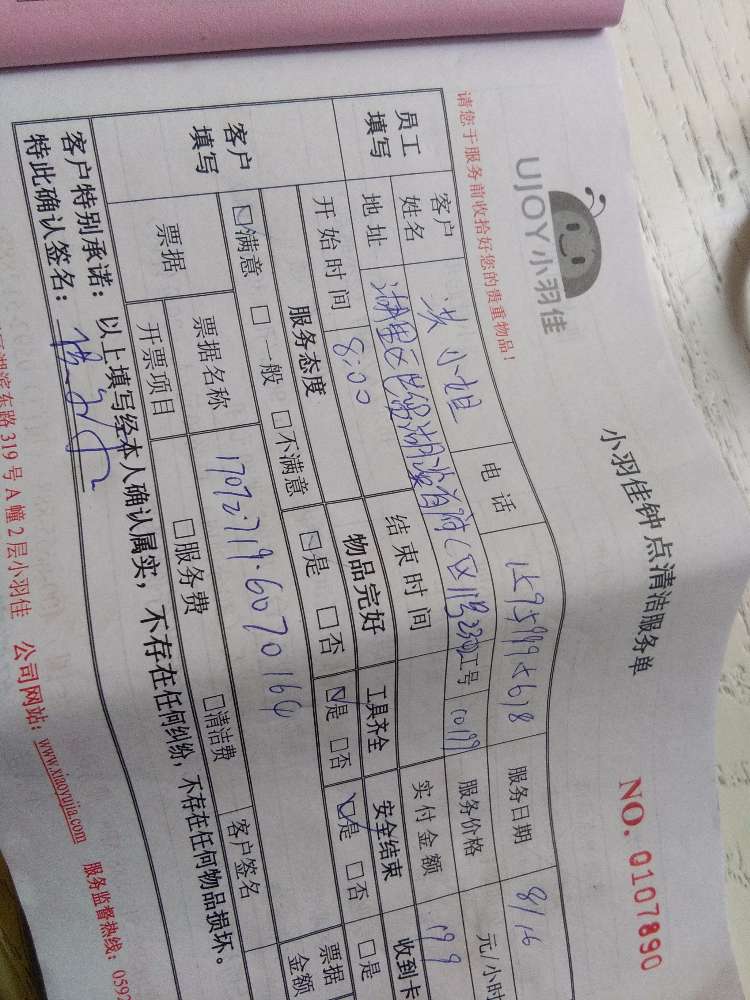 UJOY小羽佳
小羽佳钟点清洁服务单
NO. 0107890
请您于服务前收拾好您的贵重物品!
员工填写 客户姓名 洪小姐 电话 服务日期 8/16
地址 湖里区 工号 服务价格 元/小时
开始时间 8:00 结束时间 实付金额 199
客户填写 服务态度 物品完好 工具齐全 安全结束 收到卡
☑满意 □一般 □不满意 ☑是 □否 ☑是 □否 ☑是 □否 □是
票据 票据名称 17072719.6070164 客户签名 票据金额
开票项目 □服务费 □清洁费
客户特别承诺:以上填写经本人确认属实,不存在任何纠纷,不存在任何物品损坏。
特此确认签名:
湖滨东路319号A幢2层小羽佳 公司网站:www.xiaoyujia.com 服务监督热线:0592